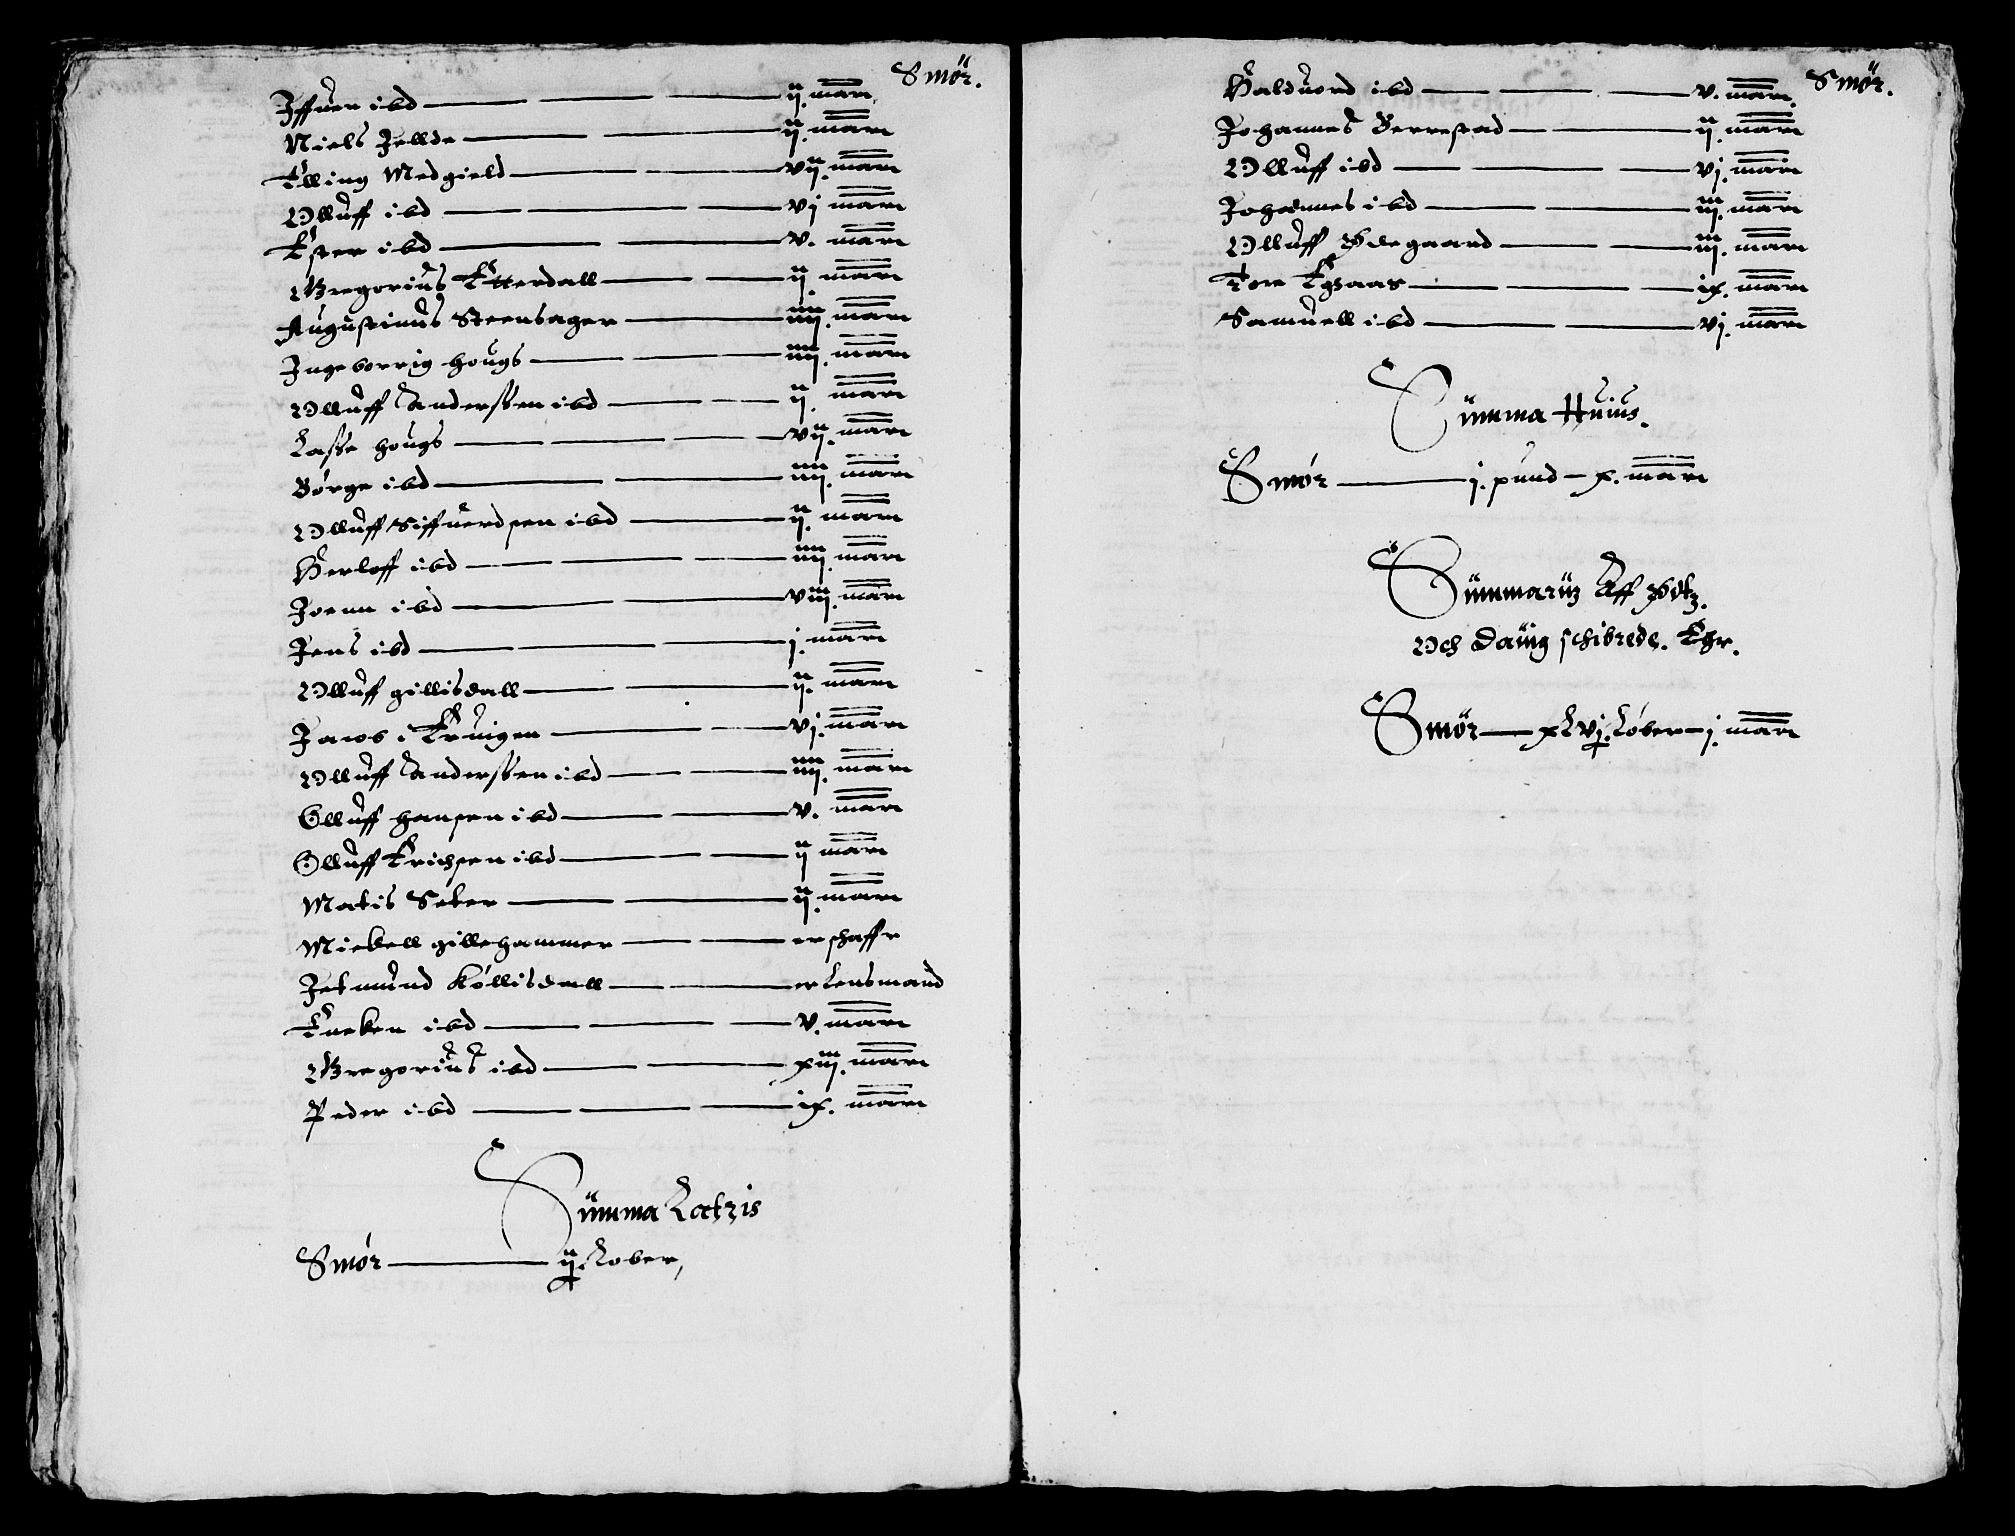 Smör.
Iffuer ibd ij. marc
Niels Jellde ij. marc
Elling Medgield vij. marc
Olluff ibd vj marc
Ester ibd v. marc
Gregorius Etterdall ij. marc
Augustinus Steensager iiij. marc
Ingeborrig hougs iiij. marc
Olluff Anderssen ibd ij. marc
Lasse hougs vij. marc
Börge ibd iiij. marc
Olluff Siffuerdsen ibd ij. marc
Herloff ibd iiij. marc
Joenn ibd viij. marc
Jens ibd j. marc
Olluff gillisdall ij. marc
Jacos i Kruigen vj. marc
Olluff Anderssen ibd iiij. marc
Olluff hansen ibd v. marc
Olluff Erichsen ibd ij marc
Matis Seter ij. marc
Mickell gillehammer er schaffr
Jetmund Köllisdall er Lensmand
Eneken ibd v. marc
Gregorius ibd xiij. marc
Peder ibd ix. marc
Summa Latris
Smör ij. Lober,
Smör.
Halduord ibd v. marc
Johannes Berrestad ij. marc
Olluff ibd vj. marc
Johannes ibd iij. marc
Olluff Ødegaard iij. marc
Tore Egsaas ix. marc
Samuell ibd vj. marc
Summa Huius.
Smör j. pund x. marc
Summarum Aff
Och Dauig schibrede.
Smör xLvj. Löber j. marc